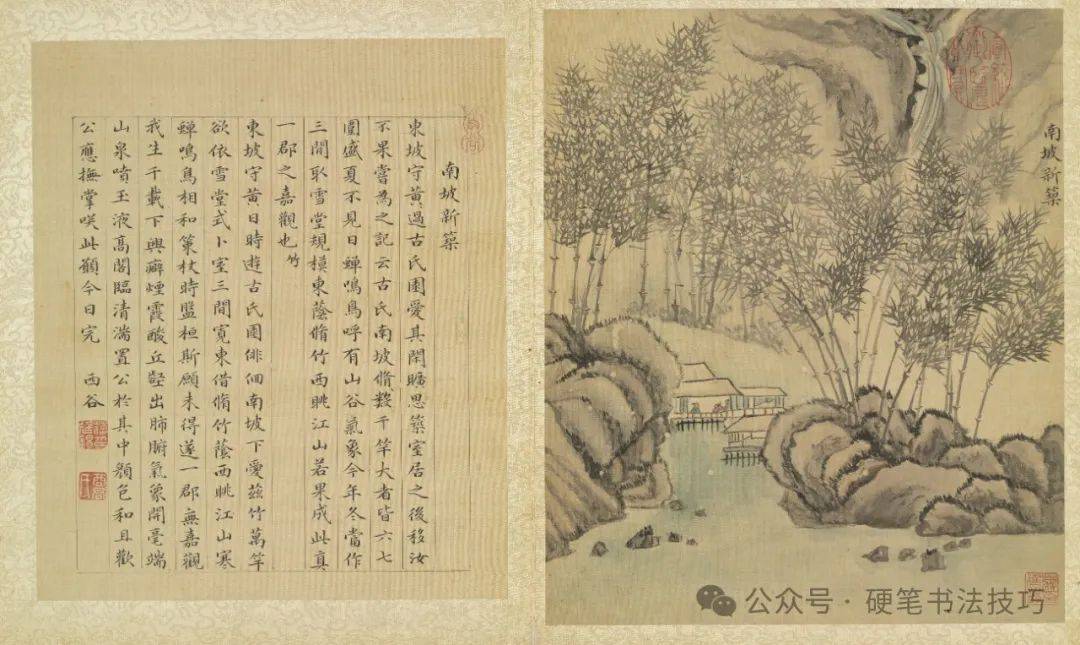 南坡新築
東坡守黃過古氏園愛其閑曠思築室居之後移汝
不果嘗為之記云古氏南坡脩數千竿大者皆六七
圍盛夏不見日蟬鳴鳥呼有山谷氣象今年冬當作
三間取雪堂規模東蔭脩竹西眺江山若果成此真
一郡之嘉觀也 竹
東坡守黃日時遊古氏園俳佪南坡下愛茲竹萬竿
欲依雪堂式卜室三間寬東借脩竹蔭西眺江山寒
蟬鳴鳥相和策杖時盤桓斯願未得遂一郡無嘉觀
我生千載下興癖煙霞酸丘壑出肺腑氣象開毫端
山泉噴玉液高閣臨清湍置公於其中顏色和且歡
公應撫掌咲此願今日完 西谷
南坡新築
公众号·硬笔书法技巧